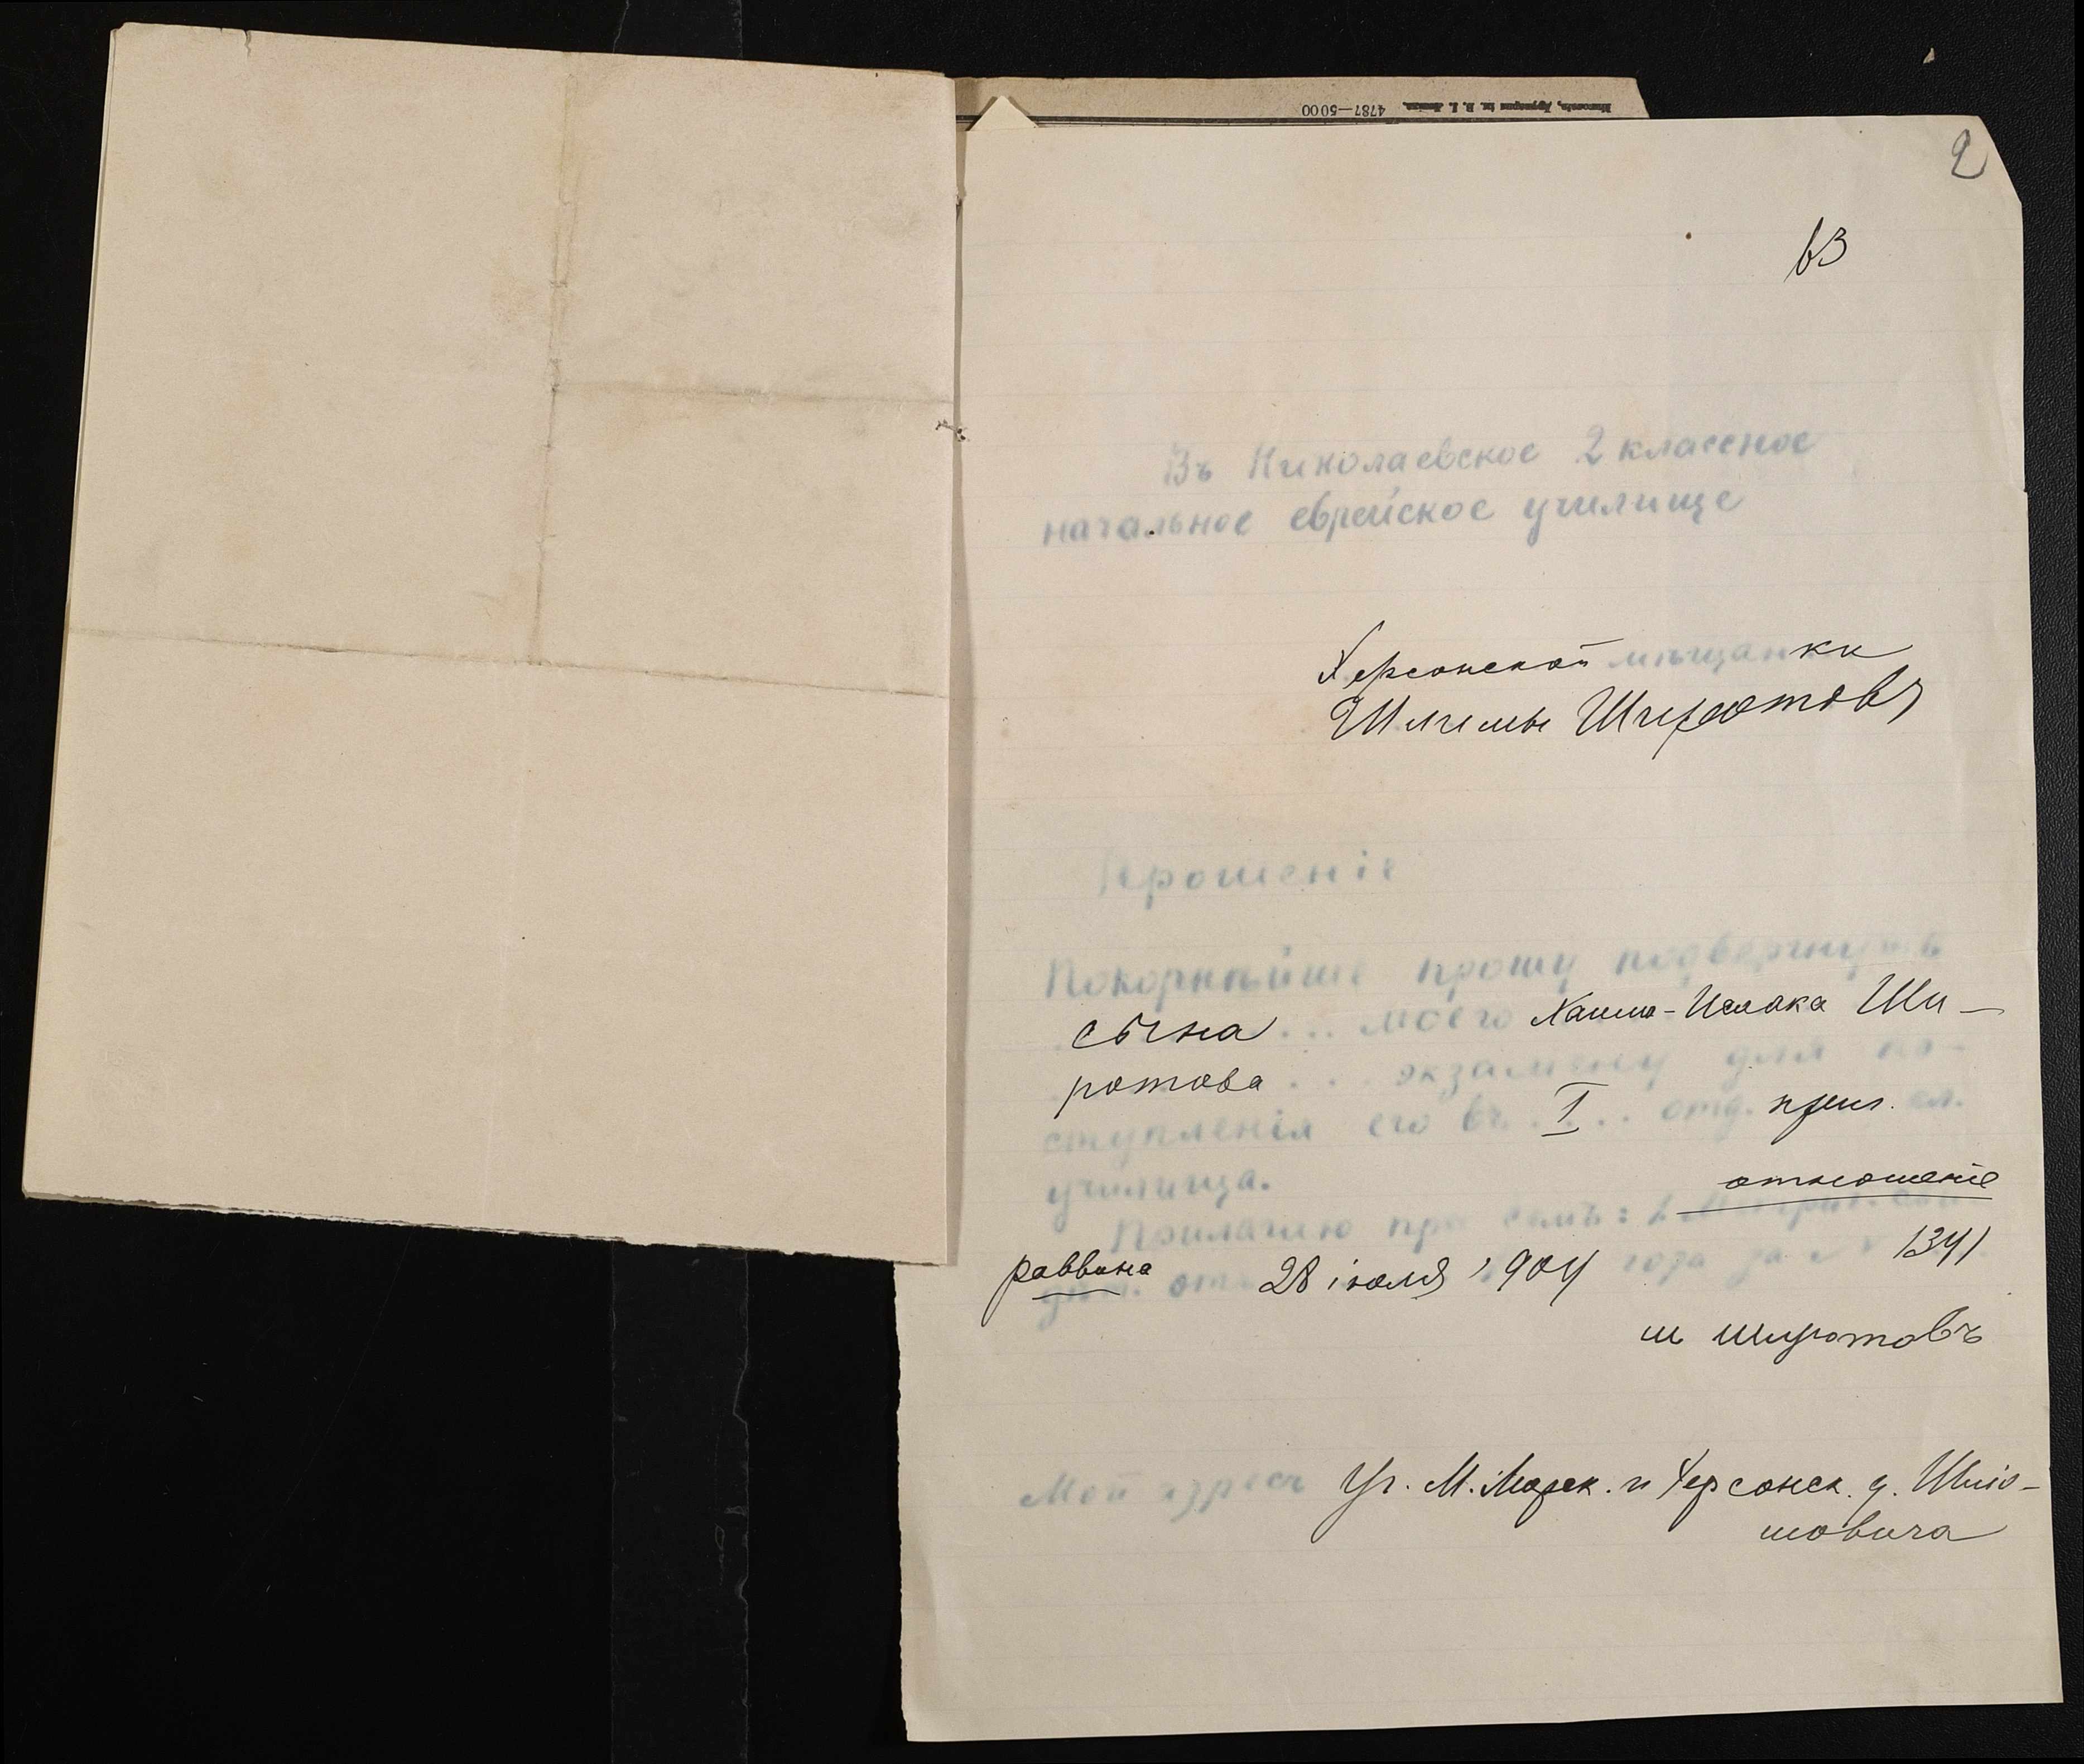 4787—5000
2
63
Въ Николаевское 2 классное
начальное еврейское училище
Херсонской мѣщанки
Широтовъ
Прошеніе
Покорнѣйше прошу подвергнуть
сына ... моего Хаима-Исаака Ши-
ротова ... экзамену для по-
ступленія его въ . I . . . отд. приг. кл.
училища.
отношеніе
Прилагаю при семъ: 1
раввина 28 іюля 1904 года за № 1341
ш широтовъ
Мой адресъ Уг. М. Морск. и Херсонск. д. Шлio-
мовича